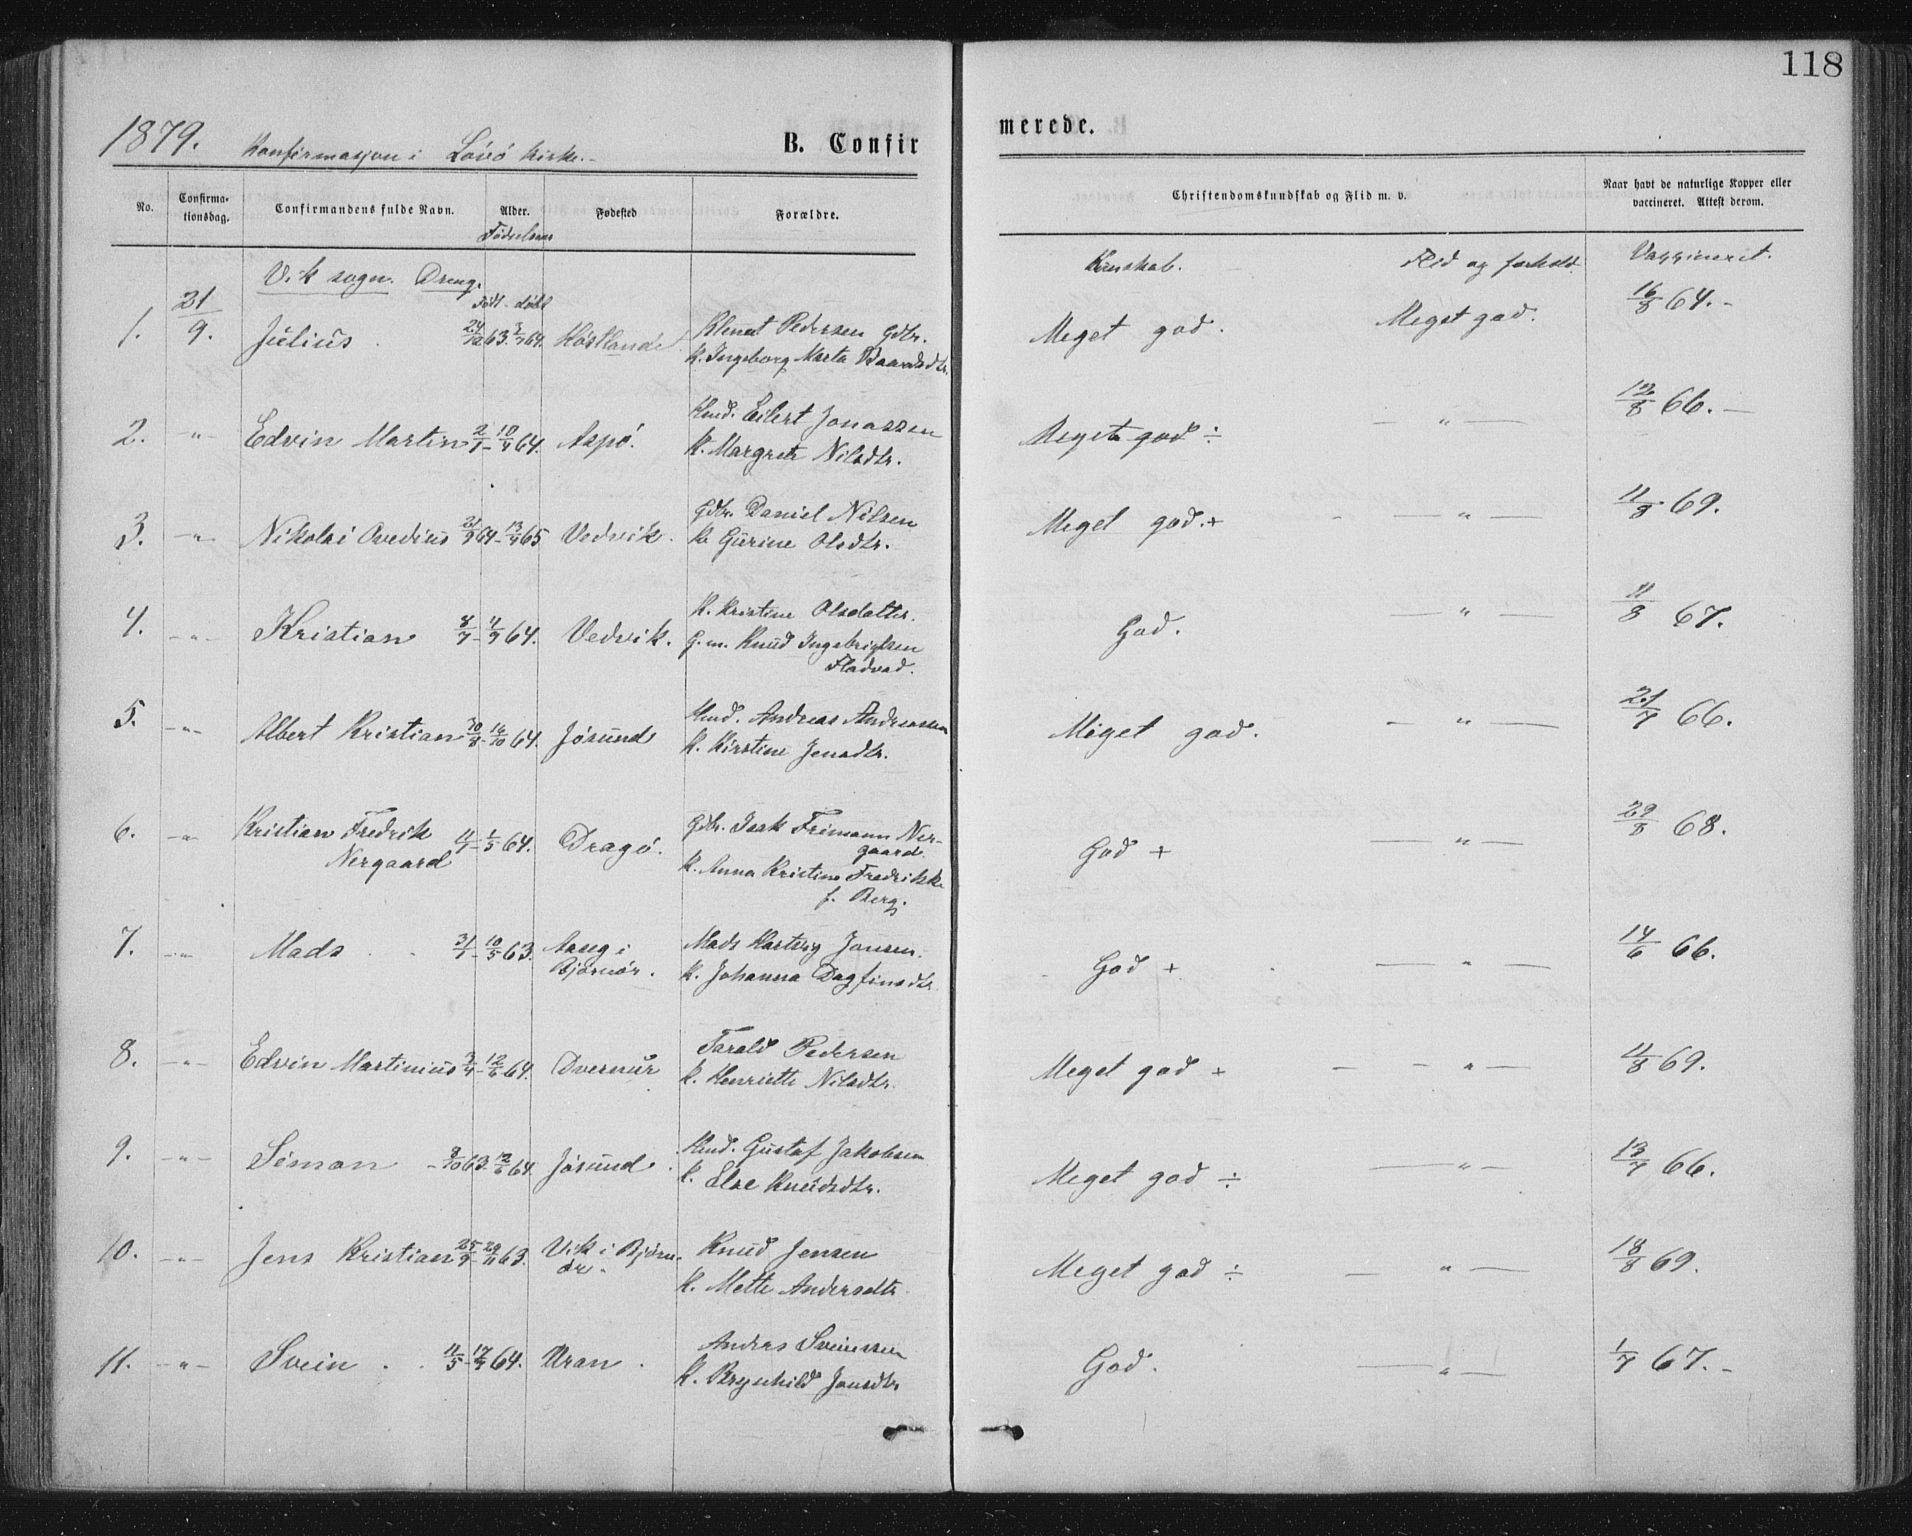 118
1879. Konfirmasjon i Lövö kirke.
B. Confirmerede.
No. Confirmationsdag. Confirmandens fulde Navn. Alder. Fødested Forældre. Christendomskundskab og Flid m. v. Naar havt de naturlige Kopper eller vaccineret. Attest derom.
Vik sogn. Dreng. Født - døbt Kunskab. Flid og forhold. Vaxxineret.
1. 21/9. Julius 24/12 63. 64. Klement Pedersen Gdbr. Meget god. Meget god. 16/8 64.-
K. Ingeborg Marta Baardsdtr.
2. -"- Edvin Martin 2/1 - 10/4 64. Aspö. Hmd. Eilert Jonassen Meget god ÷ — " — 12/8 66.-
K. Margrete Nilsdtr.
3. -"- Nikolai Ovedius 21/9 64 - 13/4 65 Vedvik. Gdbr. Daniel Nilsen Meget god. + - — " — 11/8 69.
K. Gurine Olsdtr.
4. -"- Kristian 8/7 - 4/9 64. Vedvik. K. Kristine Olsdatter. God. — " — 11/8 67.
G. m. Knud Ingebrigtsen
Fladvad.
5. -"- Albert Kristian 30/8 - 16/10 64. Jösund Hmd. Andreas Andreassen Meget god. — " — 21/7 66.
K. Kirstine Jensdtr.
6. -"- Kristian Fredrik Nergaard 1/5 64. Dragö. Gdbr. Isak Frimann Nergaard. God + — " — 29/8 68.
K. Anna Kristine Fredrikke
f. Berg.
7. -"- Mads 31/1 - 10/5 63. i Björnör. Mads Hartvig Jonsen. God + — " — 14/6 66.
K. Johanna Dagfinsdtr.
8. -"- Edvin Martinius 3/4 - 12/6 64. Dvernur Tarald Pedersen Meget god + — - " — 11/8 69.
K. Henriette Nilsdtr.
9. -"- Simon 8/10 63. 12/6 64. Jösund. Hmd. Gustaf Jakobsen Meget god ÷ — " — 13/7 66.
K. Else Knudsdtr.
10. -"- Jens Kristian 25/9 - 29/11 63. Vik i Björnör. Knud Jensen Meget god ÷ — " — 18/8 69.
K. Mette Andersdtr.
11. -"- Svein 11/5 - 17/7 64. Uran. Anders Sveinssen God. — " — 1/7 67.-
K. Brynhild Jonsdtr